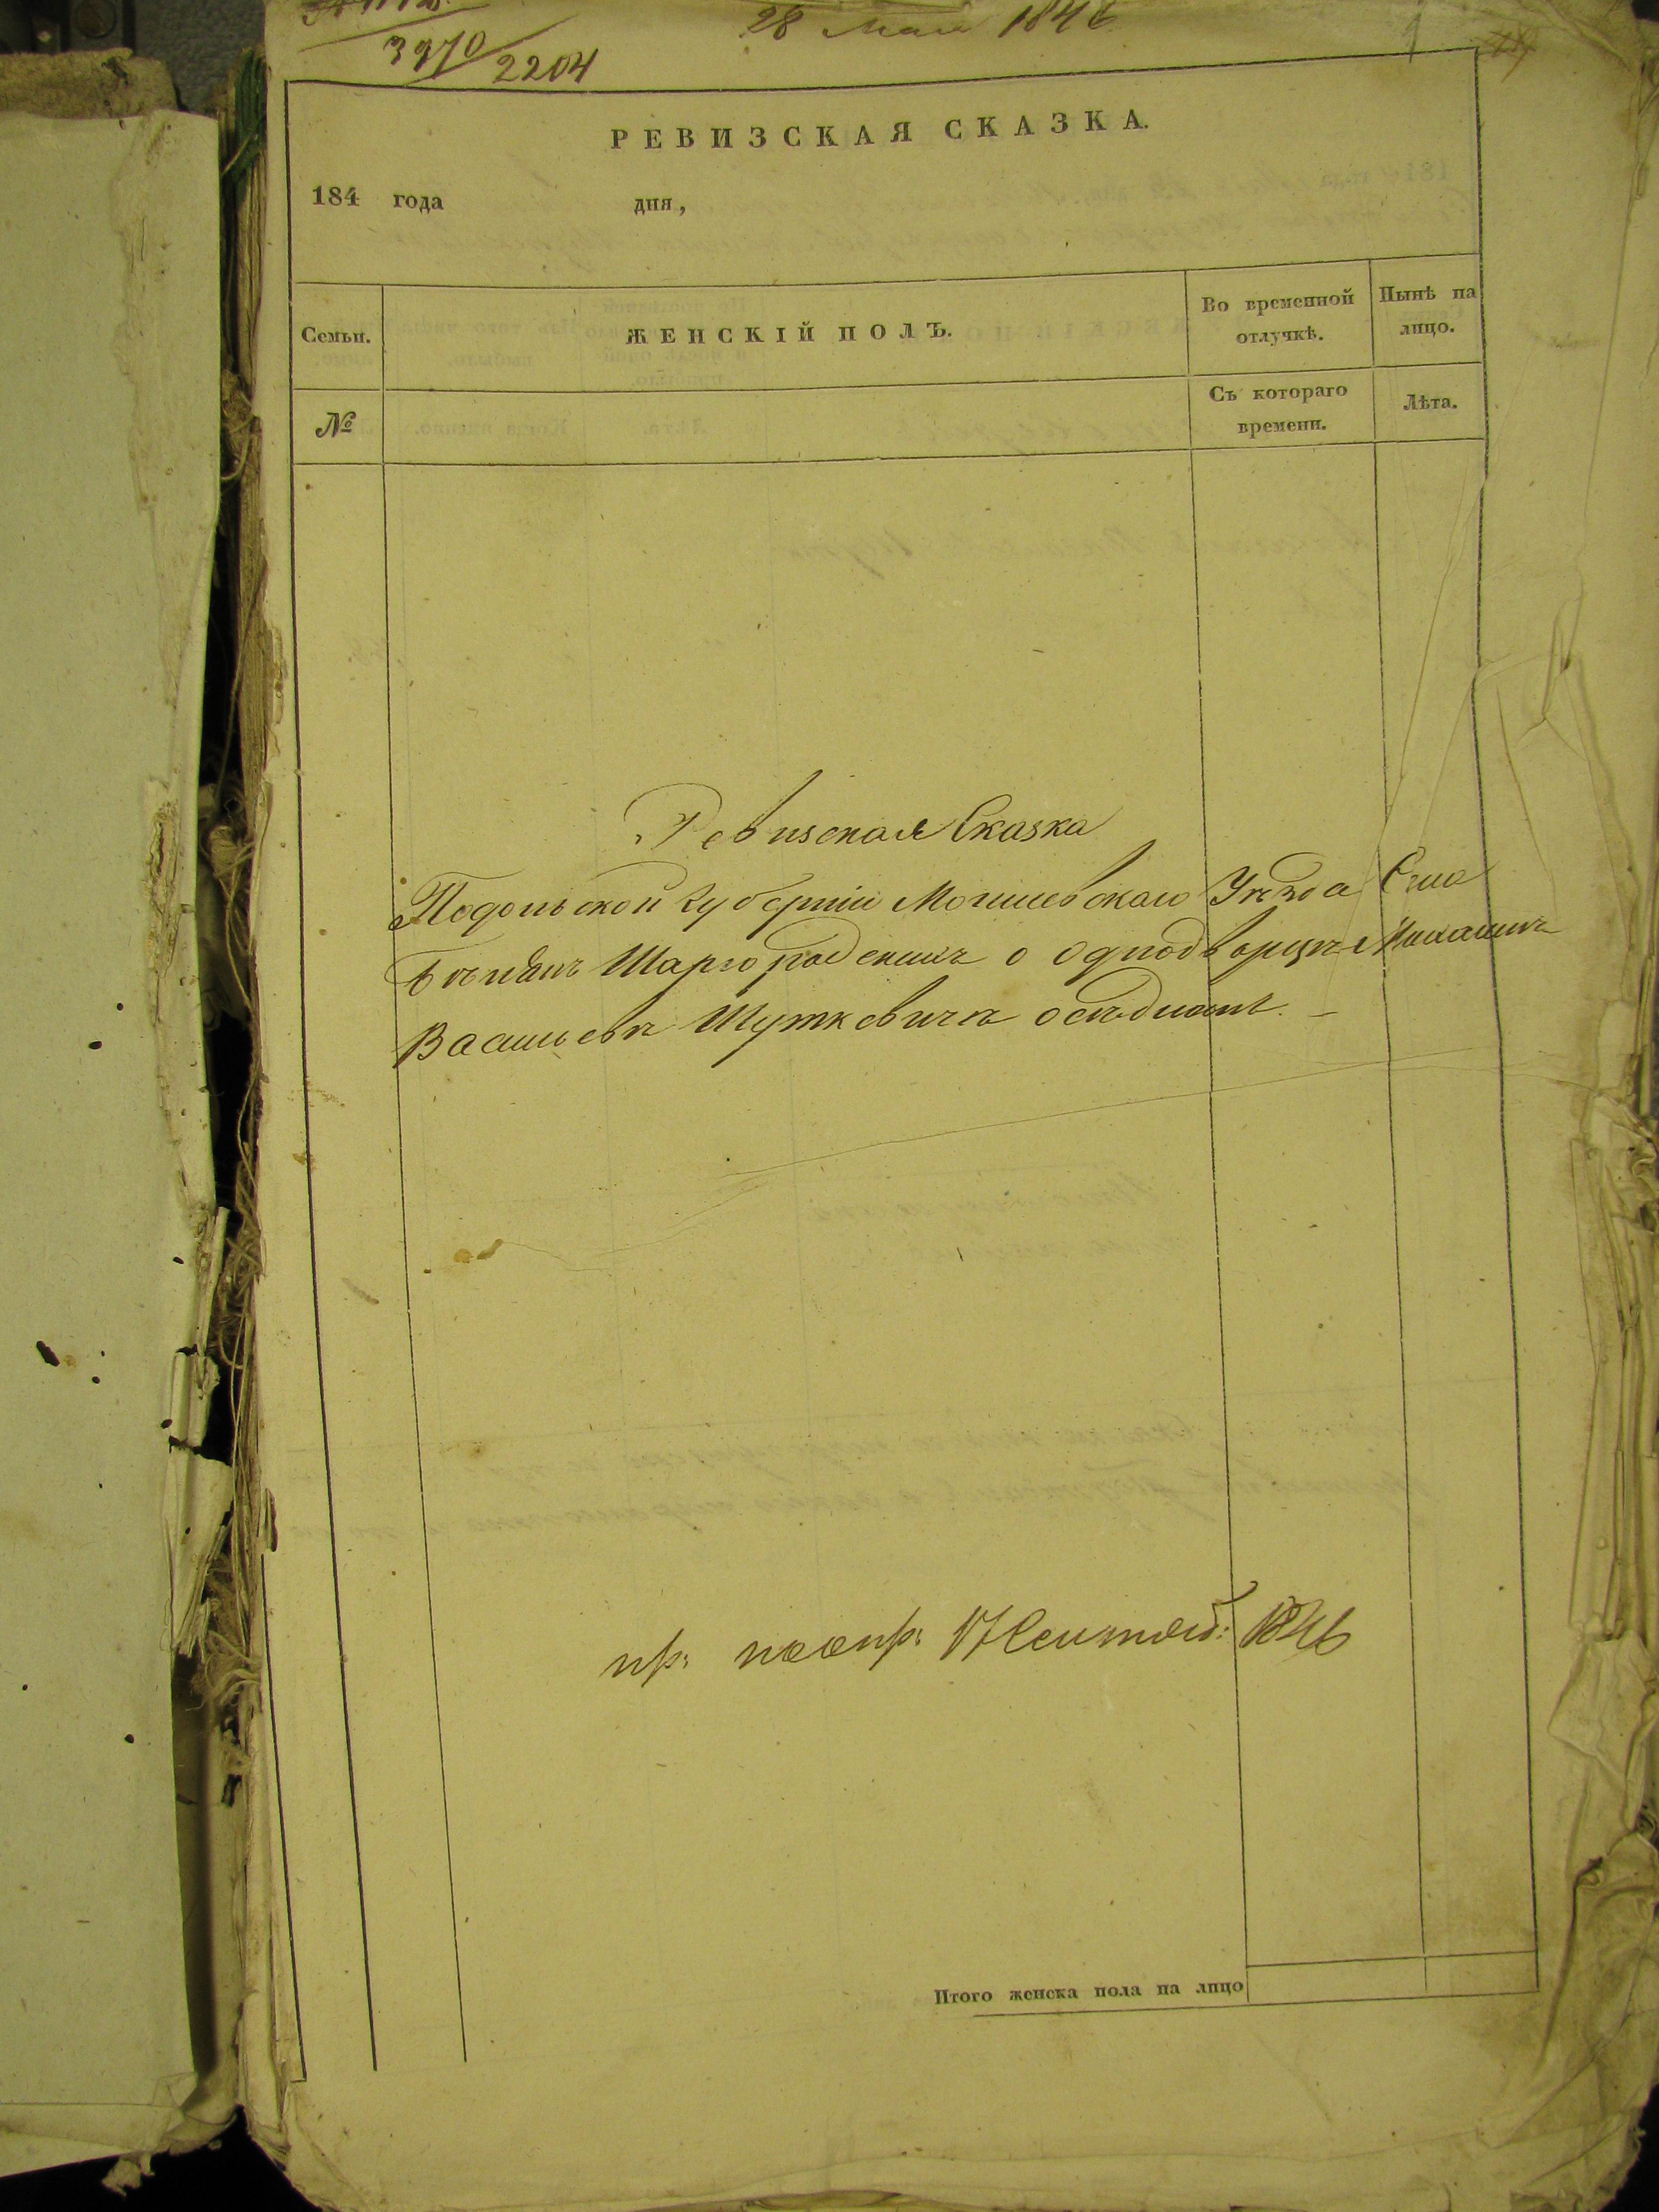 3970/2204
28 Мая 1846
РЕВИЗСКАЯ СКАЗКА.
184 года дня,
Семьи. ЖЕНСКІЙ ПОЛЪ. Во временной отлучкѣ. Нынѣ на лицо.
№ Съ котораго времени. Лѣта.
Ревизская Сказка
Подольской Губерніи Могилевскаго Уѣзда Села
Шаргородскихъ о однодворцѣ
Васильевѣ Шуткевичѣ осѣдломъ. –
пр: 17 Сентяб: 1846
Итого женска пола на лицо